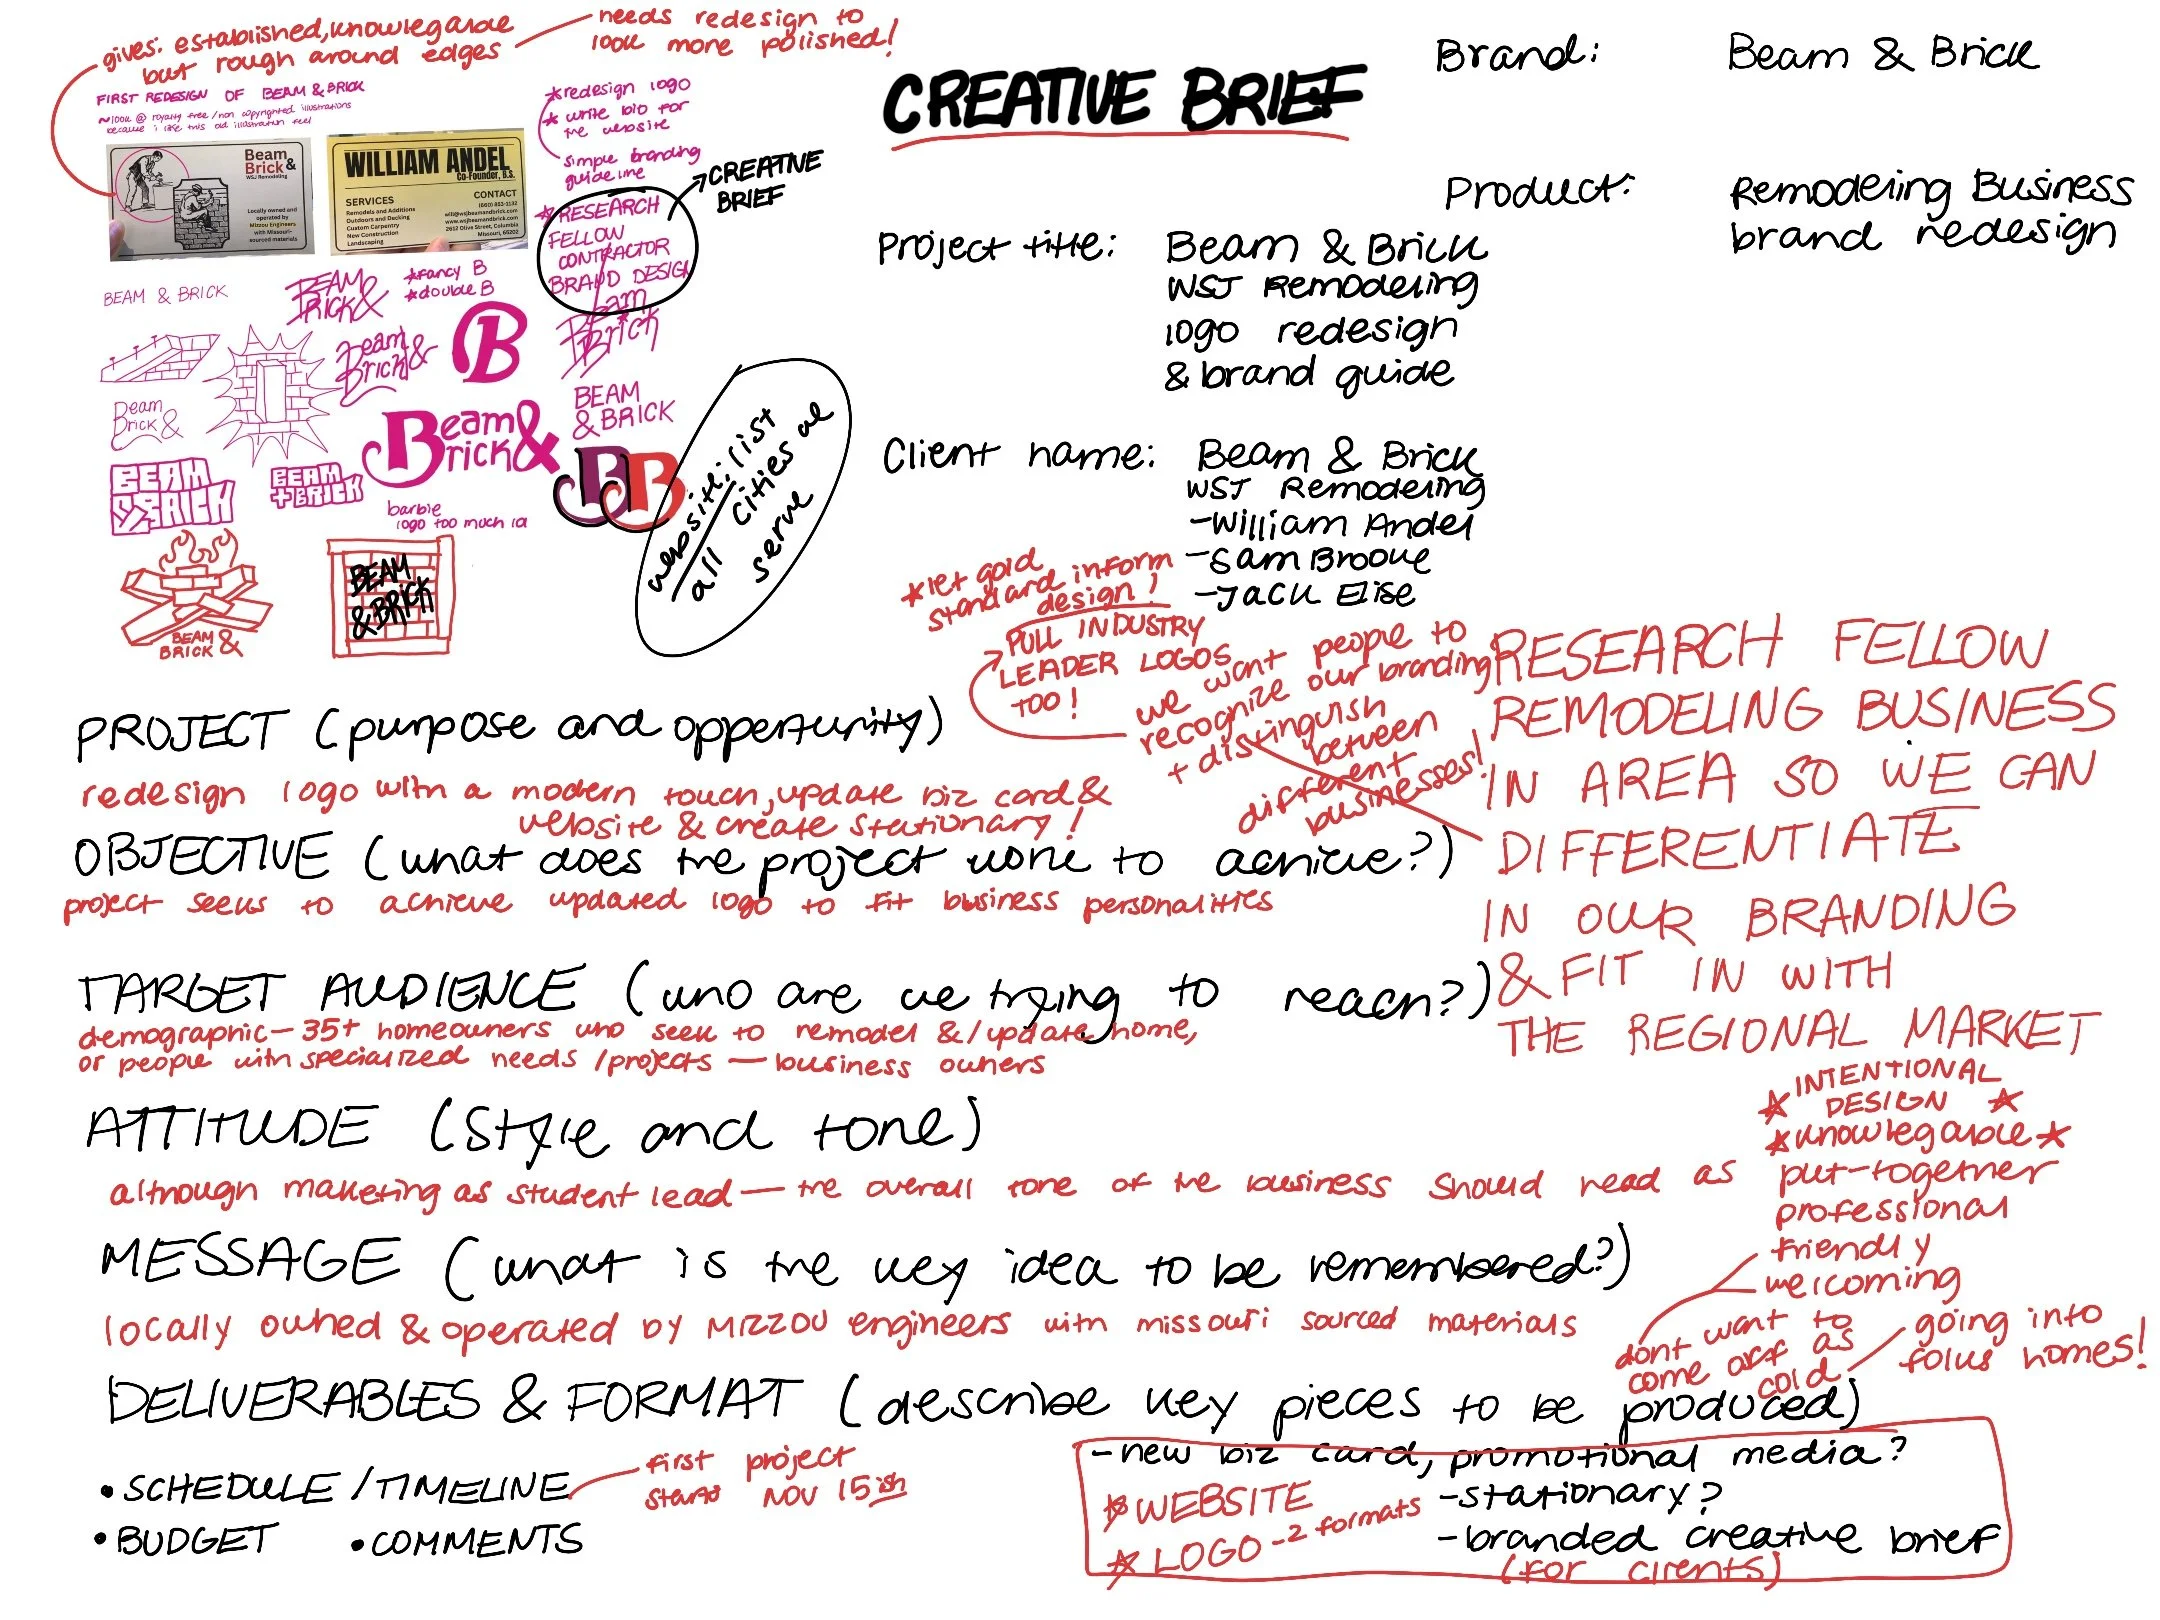 gives: established, knowlegable
but rough around edges
needs redesign to
look more polished!
FIRST REDESIGN OF BEAM & BRICK
~look @ royalty free / non copyrighted illustrations
because i like this old illustration feel
Beam &
Brick
WSJ Remodeling
Locally owned and
operated by
Mizzou Engineers
with Missouri-
sourced materials
WILLIAM ANDEL
Co-Founder, B.S.
SERVICES
Remodels and Additions
Outdoors and Decking
Custom Carpentry
New Construction
Landscaping
CONTACT
(660) 853-1132
will@wsjbeamandbrick.com
www.wsjbeamandbrick.com
2612 Olive Street, Columbia
Missouri, 65202
*redesign logo
* write bio for
the website
simple branding
guideline
* RESEARCH
FELLOW
CONTRACTOR
BRAND DESIGN
CREATIVE
BRIEF
BEAM & BRICK
BEAM
BRICK &
*fancy B
*double B
B
Beam
Brick
Beam &
Brick
Beam
Brick &
Beam &
Brick
BEAM
& BRICK
BEAM
& BRICK
BEAM
+BRICK
barbie
logo too much lol
BB
BEAM
BRICK &
BEAM
& BRICK
website: list
all cities we
serve
CREATIVE BRIEF
Brand: Beam & Brick
Product: Remodeling Business
brand redesign
Project title: Beam & Brick
WSJ Remodeling
logo redesign
& brand guide
Client name: Beam & Brick
WSJ Remodeling
-William Andel
-Sam Brooke
-Jack Elise
*let gold
standard inform
design!
PULL INDUSTRY
LEADER LOGOS
TOO!
we want people to
recognize our branding
+ distinguish
between
different
businesses!
RESEARCH FELLOW
REMODELING BUSINESS
IN AREA SO WE CAN
DIFFERENTIATE
IN OUR BRANDING
& FIT IN WITH
THE REGIONAL MARKET
PROJECT (purpose and oppertunity)
redesign logo with a modern touch, update biz card &
website & create stationary!
OBJECTIVE (what does the project work to achieve?)
project seeks to achieve updated logo to fit business personalities
TARGET AUDIENCE (who are we trying to reach?)
demographic - 35+ homeowners who seek to remodel &/update home,
or people with specialized needs/projects - business owners
ATTITUDE (style and tone)
although marketing as student lead - the overall tone of the business should read as
* INTENTIONAL
DESIGN *
*knowlegable*
put-together
professional
friendly
welcoming
dont want to
come off as
cold
going into
folks homes!
MESSAGE (what is the key idea to be remembered?)
locally owned & operated by MIZZOU engineers with missouri sourced materials
DELIVERABLES & FORMAT (describe key pieces to be produced)
• SCHEDULE/TIMELINE
first project
starts NOV 15ish
• BUDGET • COMMENTS
-new biz card, promotional media?
* WEBSITE
-stationary?
* LOGO - 2 formats
-branded creative brief
(for clients)